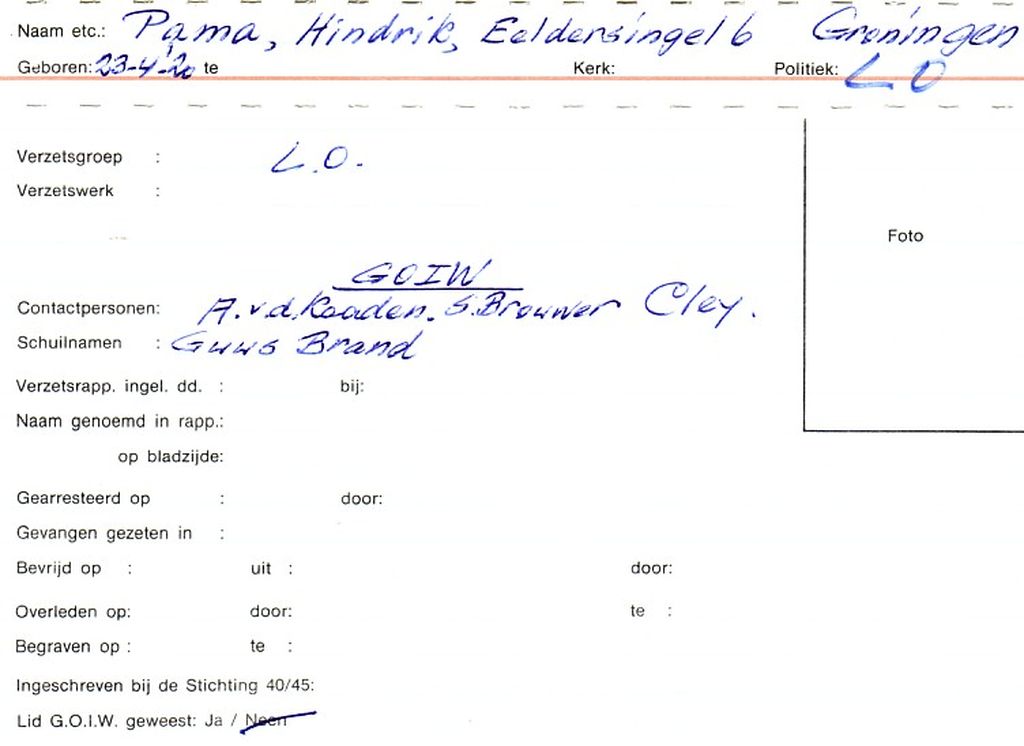 Naam etc.: Pama, Hindrik, Eeldersingel 6 Groningen
Geboren: 23-4-'20 te Kerk: Politiek: L O
Verzetsgroep : L.O.
Verzetswerk :
Foto
GOIW
Contactpersonen: A.v.d. Kaaden. S. Brouwer Cley.
Schuilnamen : Guus Brand
Verzetsrapp. ingel. dd. : bij:
Naam genoemd in rapp.:
op bladzijde:
Gearresteerd op : door:
Gevangen gezeten in :
Bevrijd op : uit : door:
Overleden op: door: te :
Begraven op : te :
Ingeschreven bij de Stichting 40/45:
Lid G.O.I.W. geweest: Ja / Neen